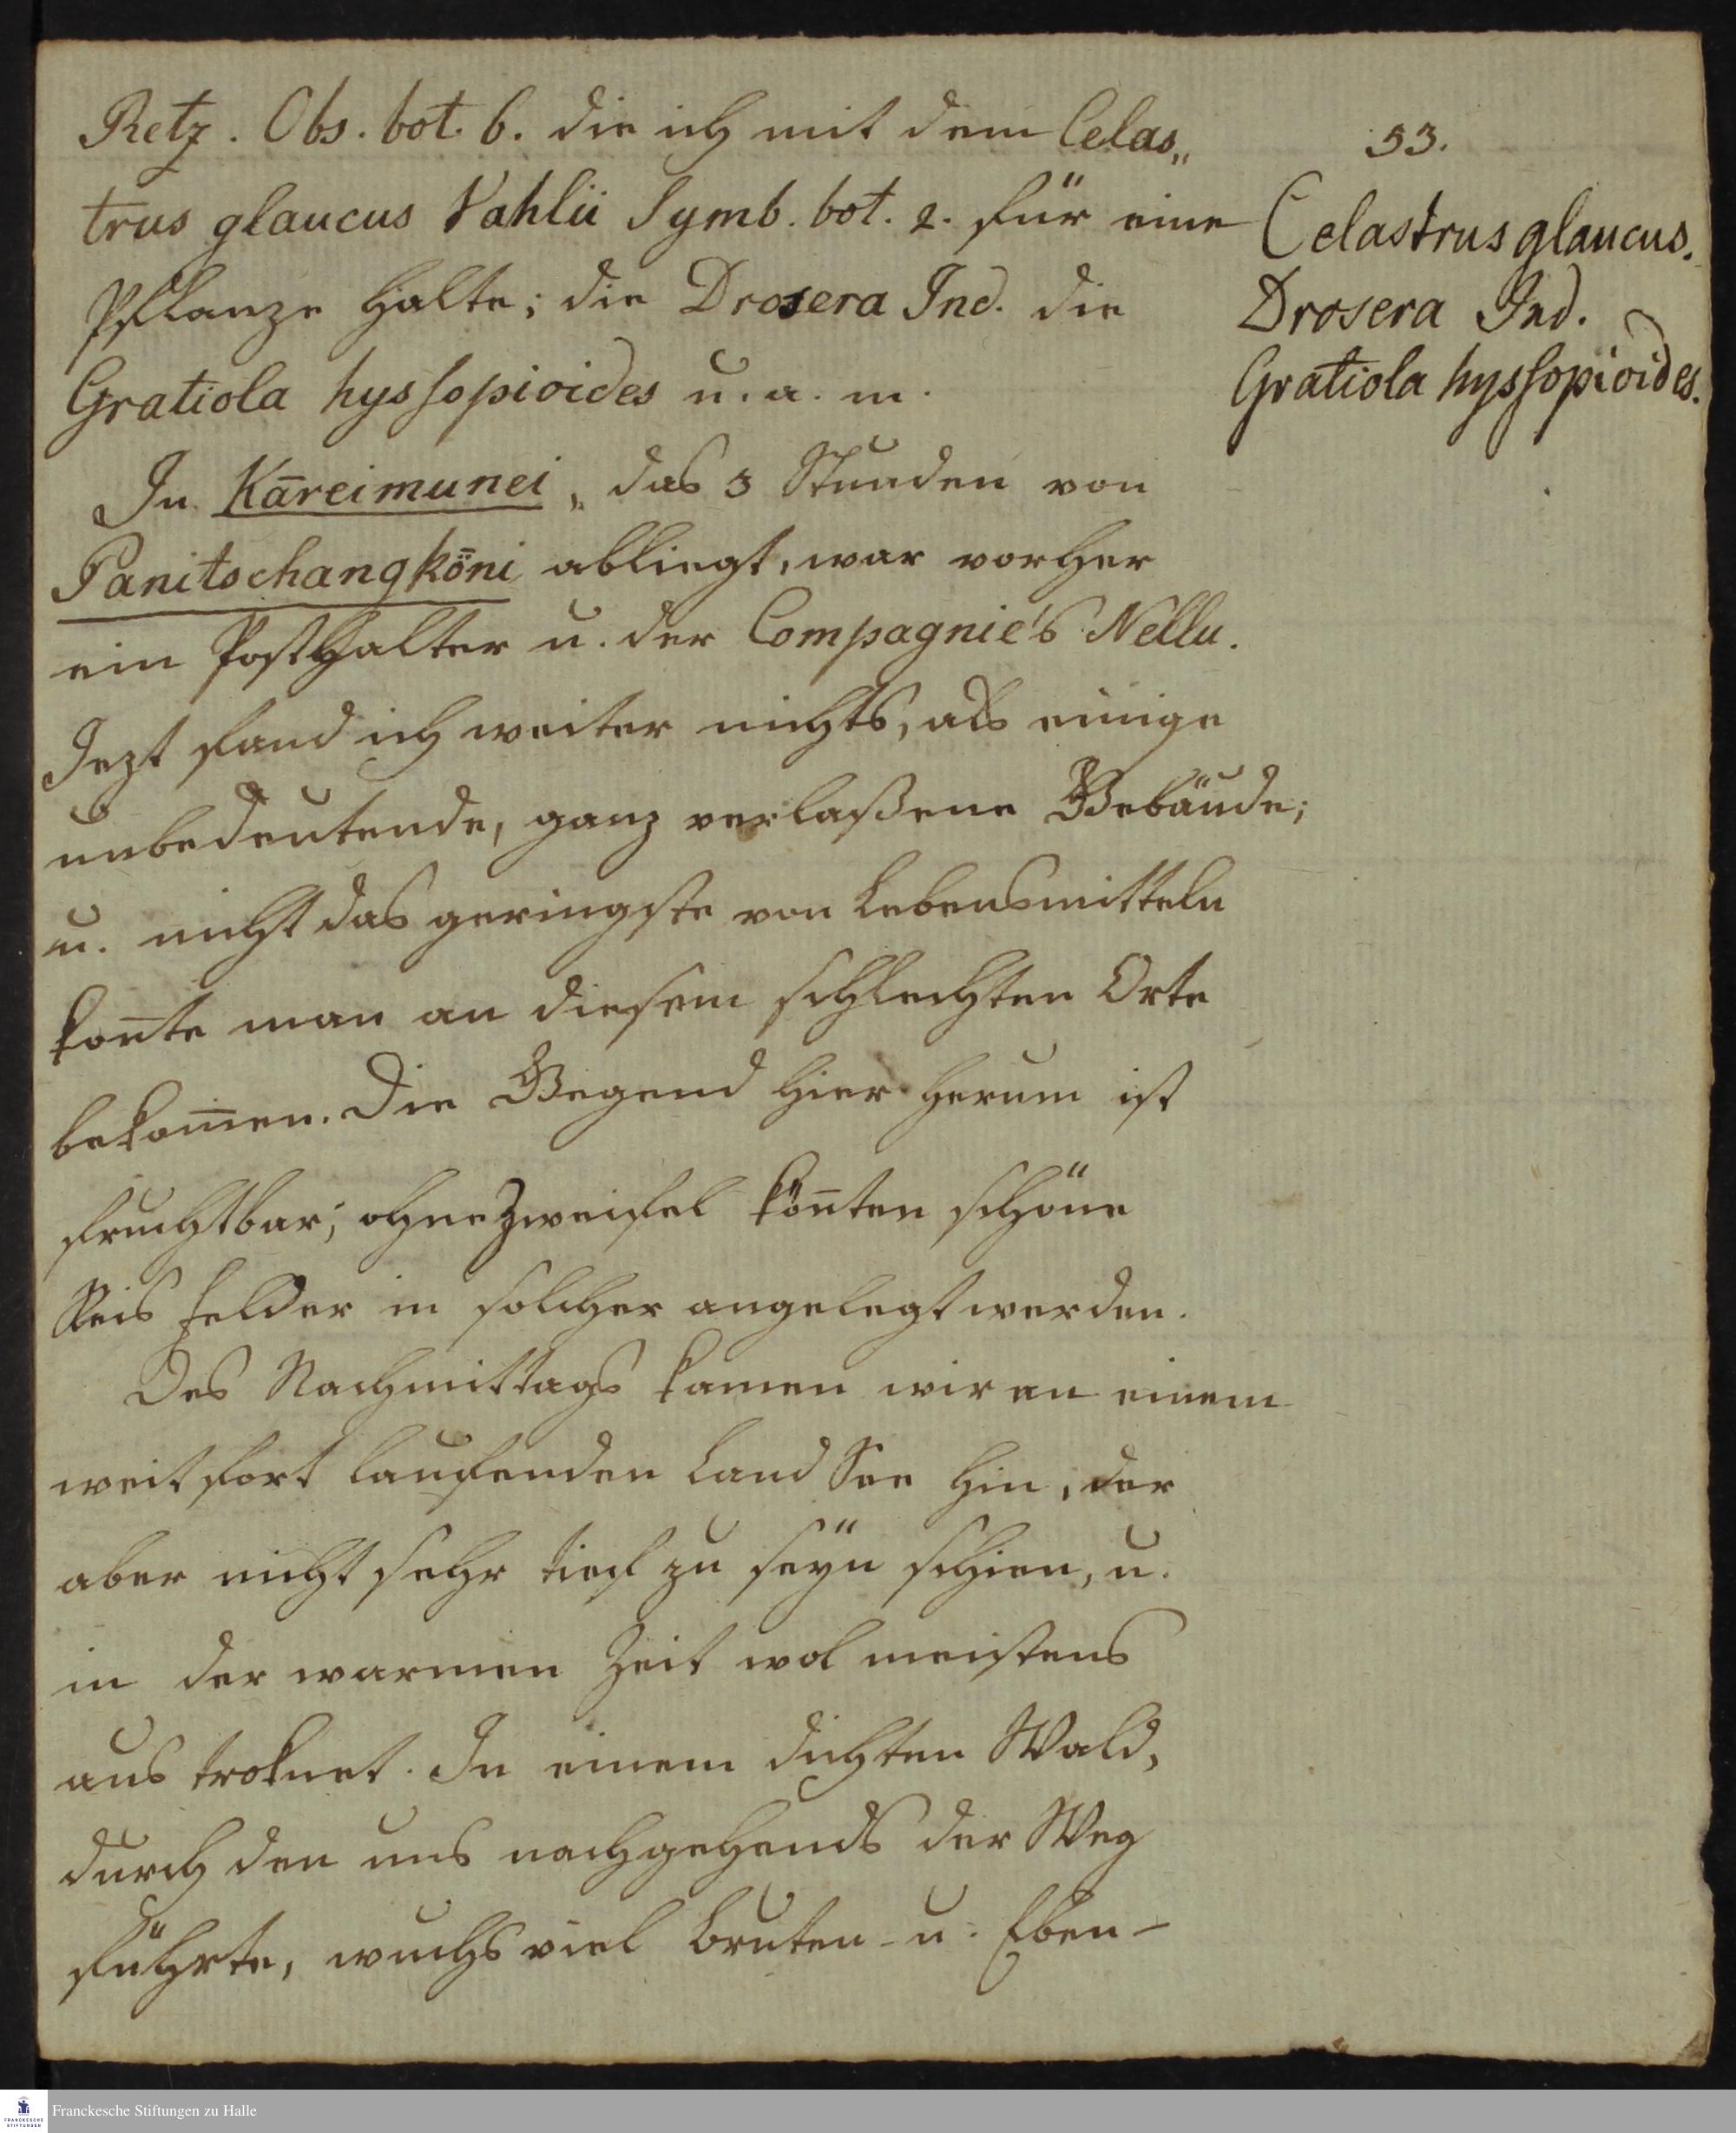 53.
Retz. Obs. bot. 6. die ich mit dem Celas„
trus glaucus Vahlii Symb. bot. 2. für eine
Pflanze halte; die Drosera Ind. die
Gratiola hyssopioides u. a. m.
Celastrus glaucus.
Drosera Ind.
Gratiola hyssopioides.
In Kāreimunei, das 3 Stunden von
Panitschangkȫni abliegt, war vorher
ein Posthalter u. der Compagnie's Nellu.
Jezt fand ich weiter nichts, als einige
unbedeutende, ganz verlaßene Gebäude;
u. nicht das geringste von Lebensmitteln
kon̄te man an diesem schlechten Orte
bekom̄en. Die Gegend hier herum ist
fruchtbar; ohne Zweifel kön̄ten schöne
Reis Felder in solcher angelegt werden.
Des Nachmittags kamen wir an einem
weit fort laufenden Land See hin, der
aber nicht sehr tief zu seÿn schien, u.
in der warmen Zeit wol meistens
aus troknet. In einem dichten Wald,
durch den uns nachgehends der Weg
führte, wuchs viel u. Eben-
Franckesche Stiftungen zu Halle